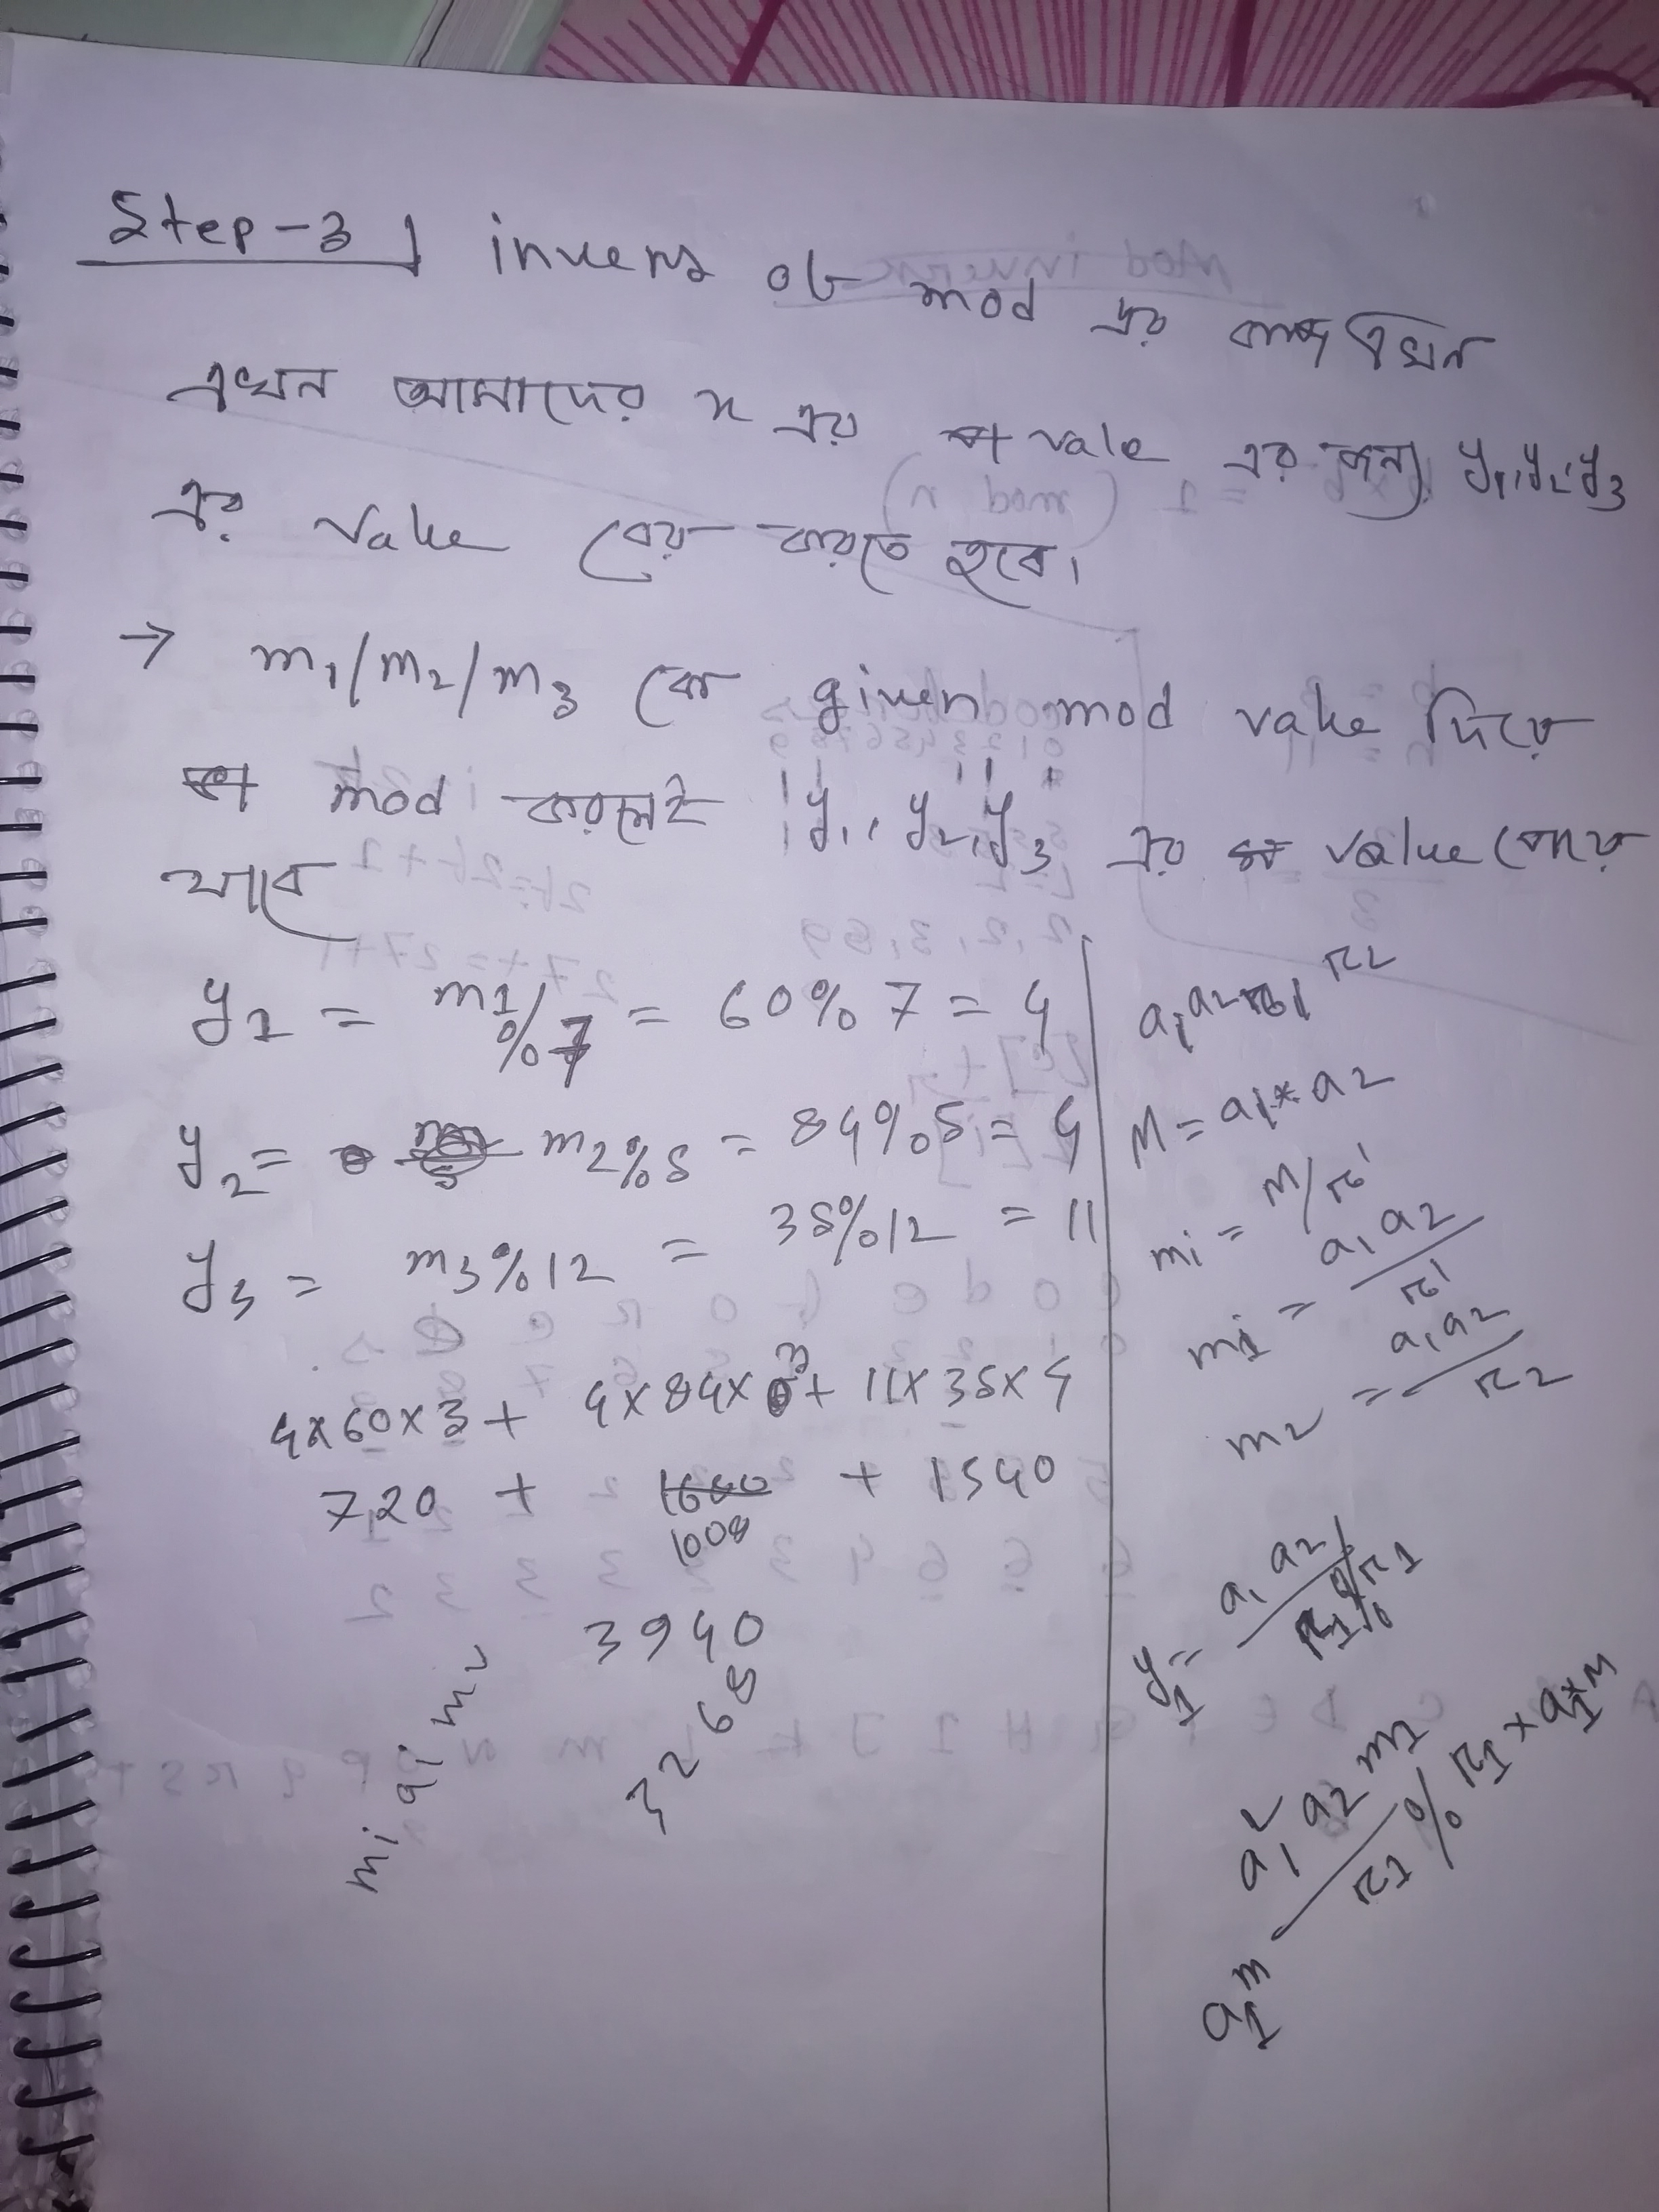 Step-3 invers of mod এর কাজ এখন
এখন আমাদের x এর vale এর জন্য y₁,y₂,y₃
এর value বের করতে হবে।
→ m₁/m₂/m₃ কে given mod value দিয়ে
mod করলেই y₁, y₂, y₃ এর value পেয়ে
যাবে
y1 = m1/%7 = 60%7 = 4
y2 = m2%5 = 84%5 = 4
y3 = m3%12 = 35%12 = 11
4x60x3 + 4x84x3 + 11x35x4
720 + 1680 + 1540
1008
3940
3268
mi ai m2
a1 a2 r1 r2
M = a1*a2
mi = M/r1
m1 = a1a2/r1
m2 = a1a2/r2
y1 = a1 a2/r1%r1
a1² a2 m1/r1 % r1 x a1*M
a1^m